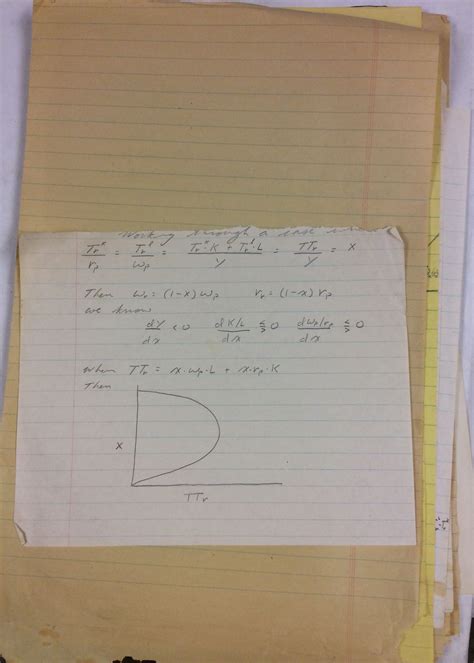 Working through a last
T_r^K / r_p = T_r^L / w_p = (T_r^K · K + T_r^L · L) / Y = TT_r / Y = x
Then w_r = (1-x) w_p    r_r = (1-x) r_p
we know
dY/dx < 0    d K/L / dx ⋚ 0    d w_p/r_p / dx ⋚ 0
When TT_r = x·w_p·L + x·r_p·K
Then
x
TT_r